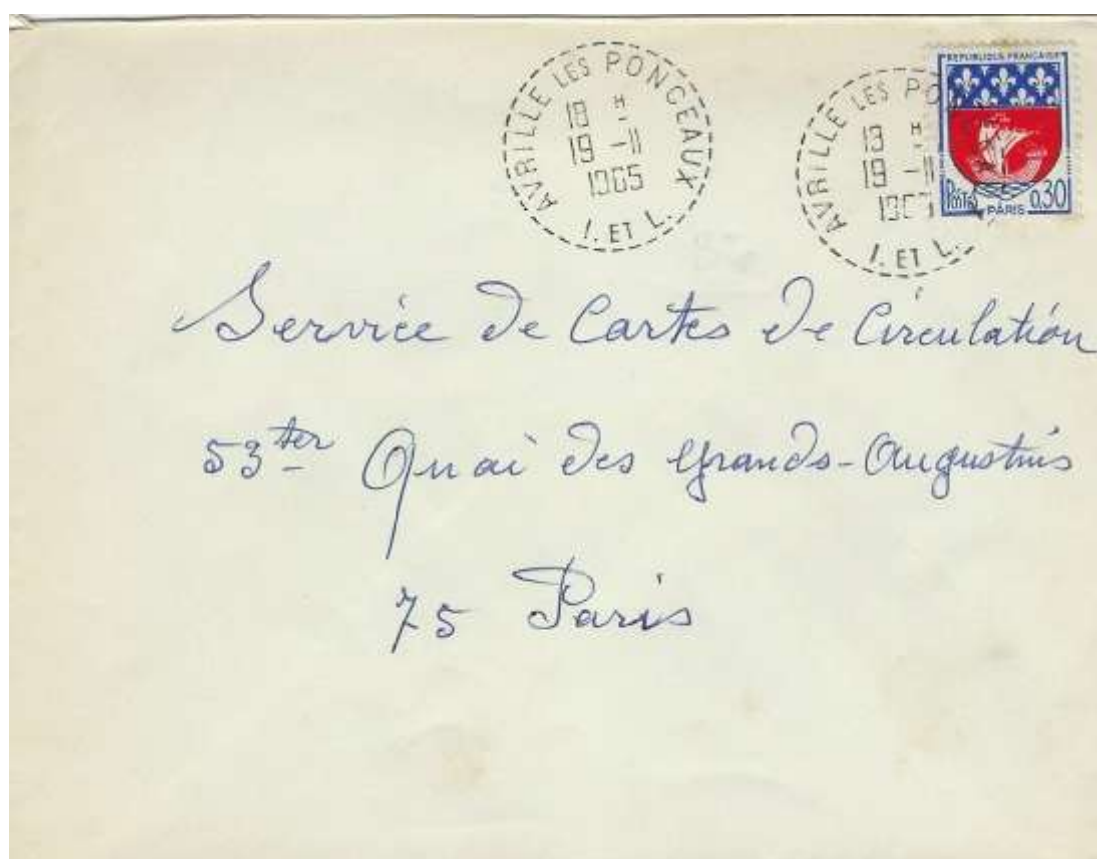 AVRILLE LES PONCEAUX
18 H
19 -11
1965
I. ET L.
AVRILLE LES PO
18 H
19 -11
I. ET L.
REPUBLIQUE FRANÇAISE
POSTES PARIS 0,30
Service de Cartes de Circulation
53 ter Quai des Grands-Augustins
75 Paris